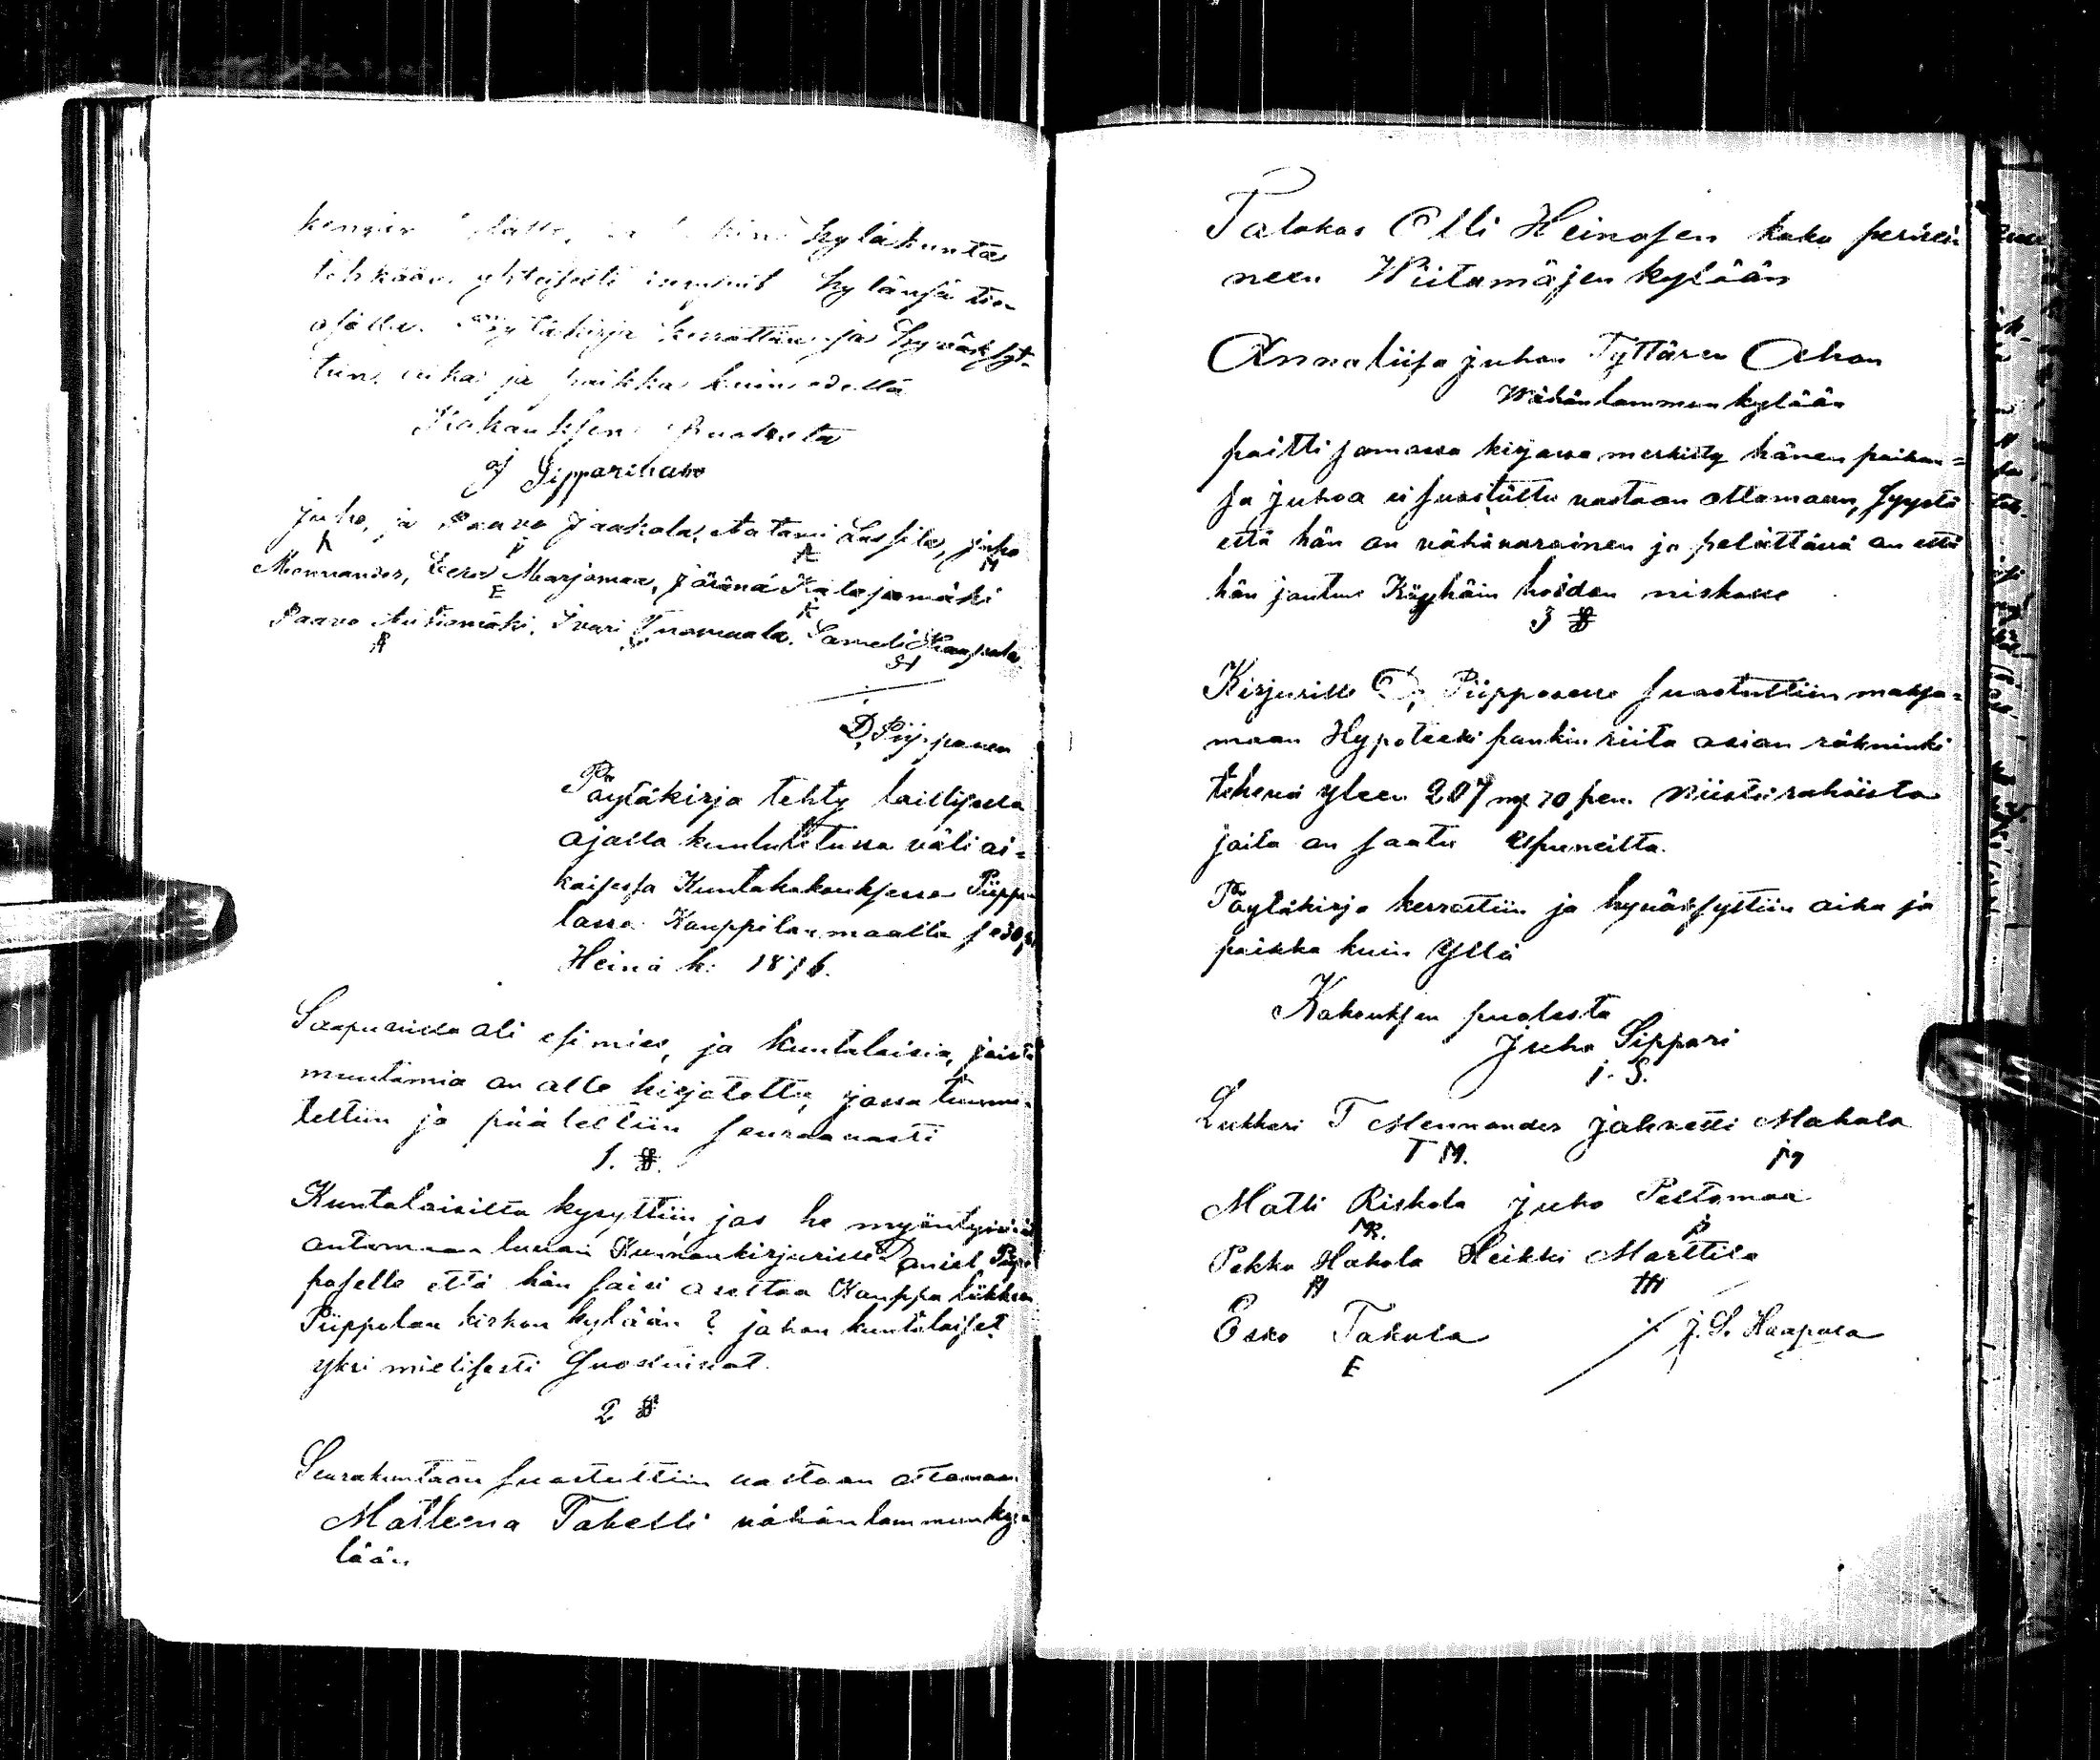 kyläkunta
tehkään yhteisesti kylänsä tien
osalla. Pöytäkirja kerrottiin ja hyväksyt-
tiin, aika ja paikka kuin edellä
Kokouksen Puolesta
J Sipparihaho
juho, ja Paavo Jaakola, Aatami Lassila, juho
A P A M
Mennander, Eero Marjomaa, Kalajamäki
E K
Paavo Autiomäki, Ivari Tuomaala. Sameli Haapala
A SH
D, Piipponen
Pöytäkirja tehty laillisella
ajalla kuulutetussa väli ai-
kaisessa Kuntakokouksessa Piippo-
lassa Kauppilan maalla se 30,
Heinä k: 1876.
Saapuvilla oli esimies, ja kuntalaisia, joista
muutamia on alle kirjotettu, jossa tuumi-
teltiin ja päätettiin seuraavasti
1. §.
Kuntalaisilta kysyttiin, jos he myöntyisivät
antamaan luvan Kunnankirjurille Daniel Piip
poselle että hän saisi asettaa Kauppa liikkeen
Piippolan kirkon kylään? johon kuntalaiset
yksi mielisesti Suostuivat.
2 §
Seurakuntaan suostuttiin vastaan ottamaan
Matleena Tabelli vähänlammen ky-
lään
Talokas Olli Heinosen koko perhei
neen Wiitamäjen kylään
Annaliisa juhon Tyttären Ahon
Wähänlammen kylään
paitti samassa kirjassa merkitty hänen poikan-
sa juhoa ei suostuttu vastaan ottamaan, syystä
että hän on vähävarainen ja pelättävä on että
hän joutuu Köyhäin hoidon niskoille
3 §
Kirjurille D, Piipposelle suostuttiin maksa-
maan Hypoteeki pankin riita asian räkninki
tekevä yleen 207 mk 70 pen. niistä rahoista
joita on saatu
Pöytäkirja kerrottiin ja hyväksyttiin aika ja
paikka kuin Yllä
Kokouksen puolesta
Juho Sippari
J. S.
Lukkari T Mennander Jahvetti Mahala
T M. M
Matti Riskala Juho Peltomaa
MR. P
Pekka Hakola Heikki Marttila
H HM
Esko Takula J. S. Haapala
E